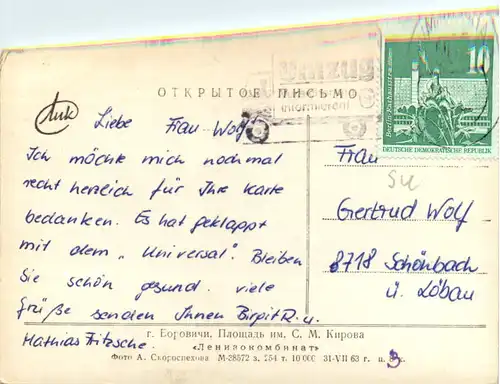 Umzug
informieren!
10
Berlin-Rathausstraße
DEUTSCHE DEMOKRATISCHE REPUBLIK
ОТКРЫТОЕ ПИСЬМО
Liebe Frau Wolf!
Ich möchte mich nochmal
recht herzlich für Ihre Karte
bedanken. Es hat geklappt
mit dem „Universal". Bleiben
Sie schön gesund. viele
Grüße senden Ihnen Birgit R. u.
Mathias Fritzsche.
Frau
Gertrud Wolf
8718 Schönbach
ü. Löbau
г. Боровичи. Площадь им. С. М. Кирова
«Ленизокомбинат»
Фото А. Скороспехова М-38572 з. 254 т. 10 000 31-VII 63 г. ц. 3 к.